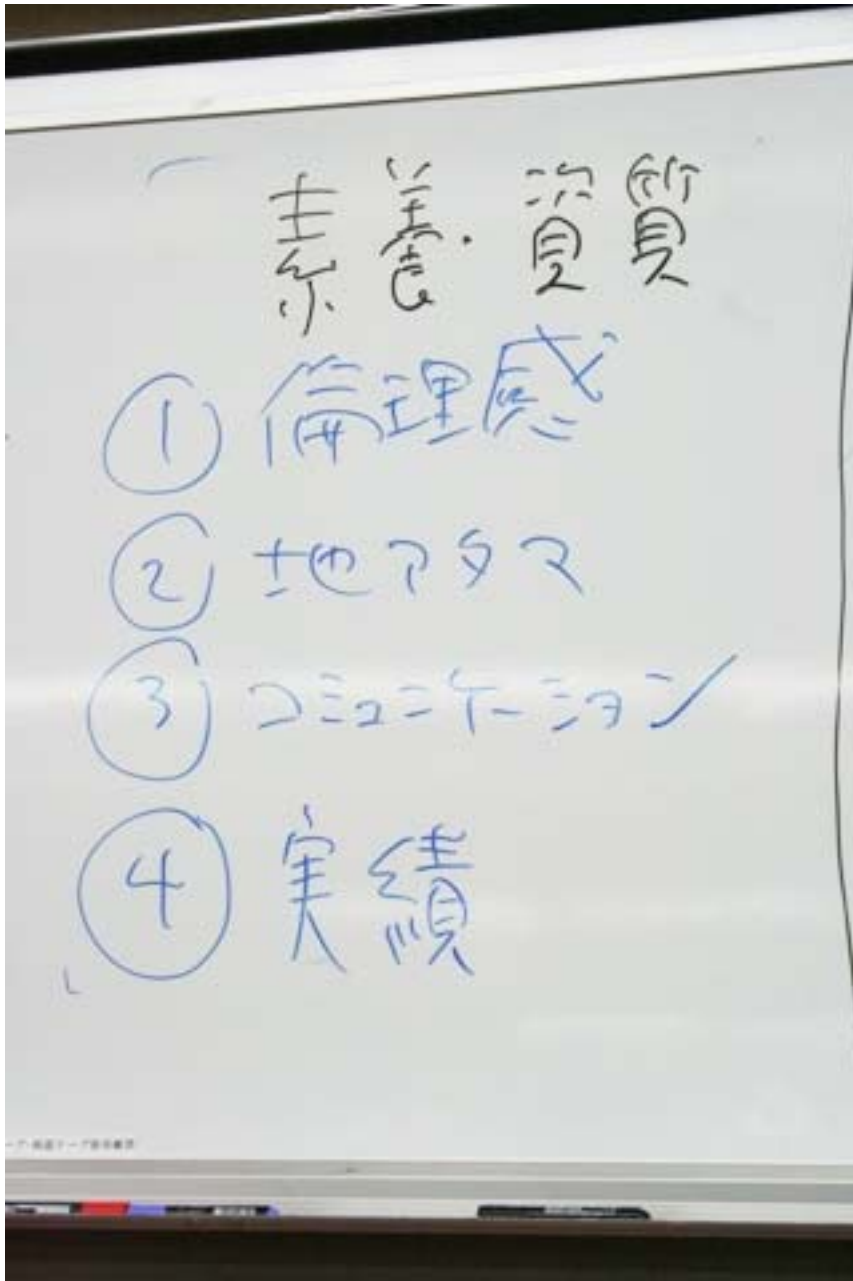 素養・資質
① 倫理感
② 地アタマ
③ コミュニケーション
④ 実績